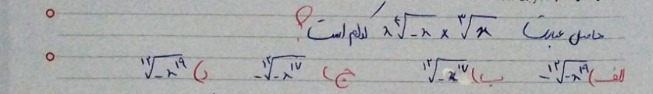 حاصل عبارت $x\sqrt[4]{-x} \times \sqrt[3]{x}$ کدام است؟
الف) $-\sqrt[12]{-x^{19}}$ ب) $\sqrt[12]{-x^{17}}$ ج) $-\sqrt[12]{-x^{17}}$ د) $\sqrt[12]{-x^{19}}$